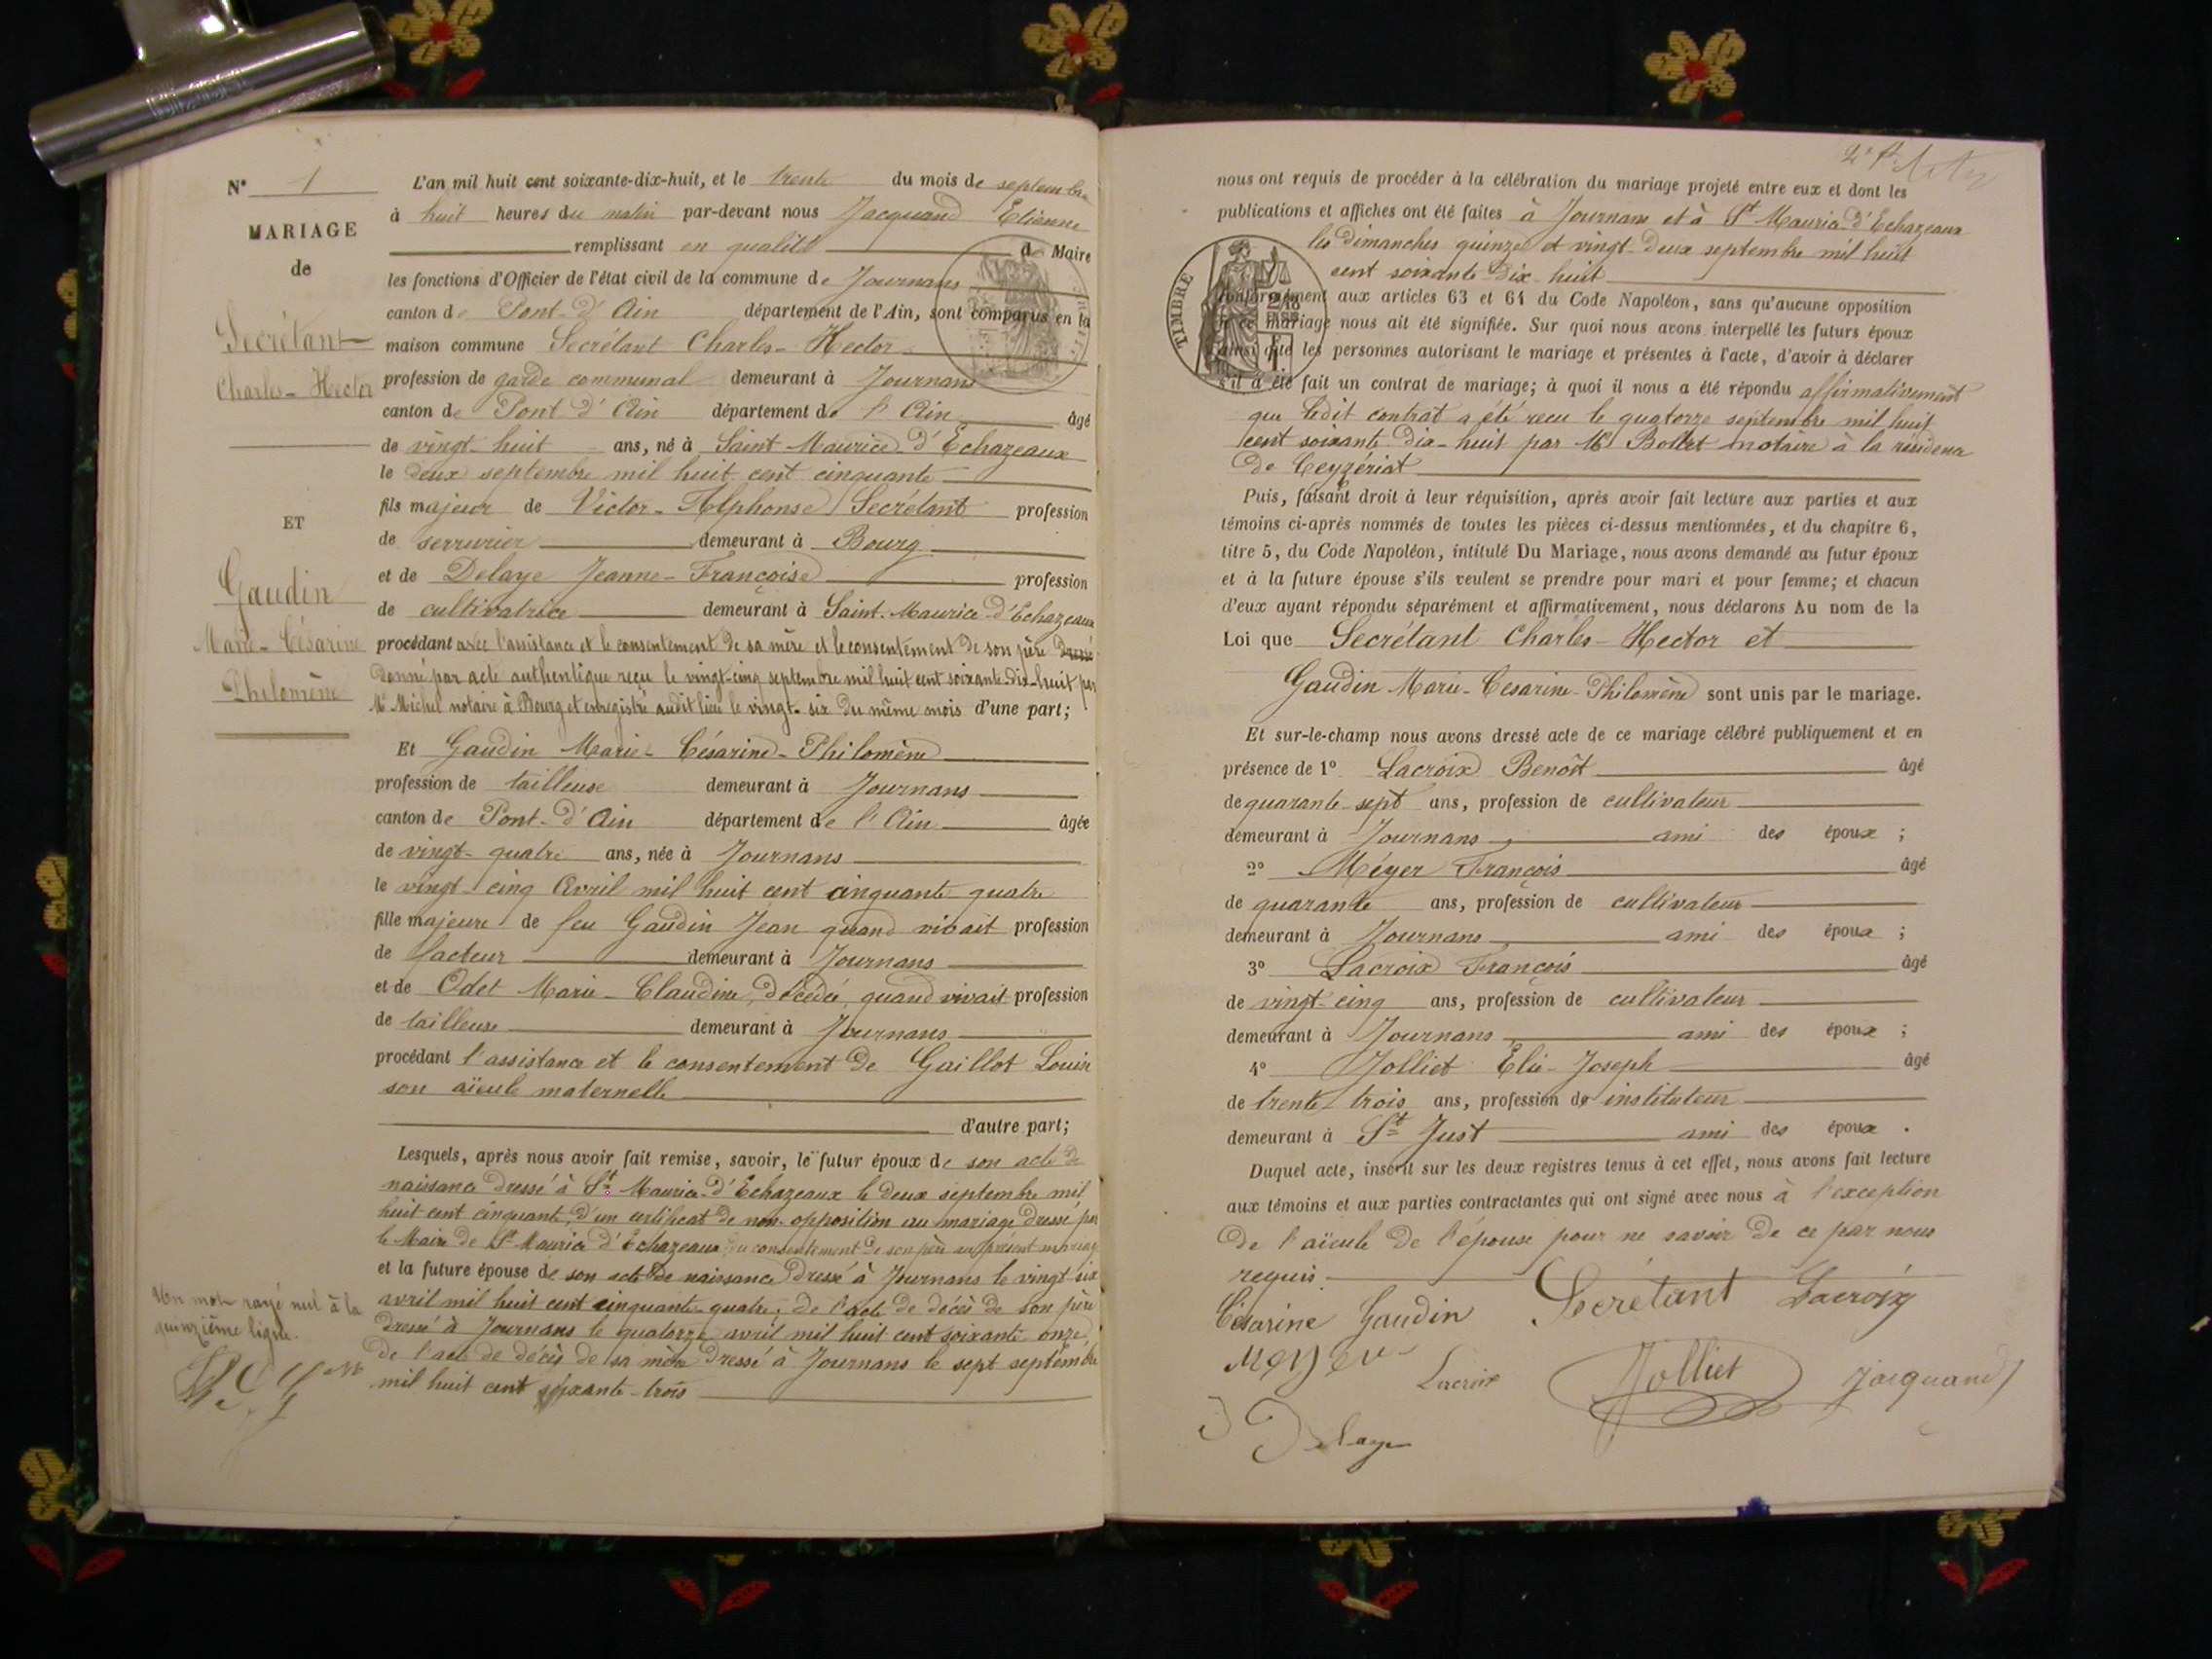 N° 1
MARIAGE
de
Secrétant
Charles-Hector
ET
Gaudin
Marie-Césarine
Philomène
Un mot rayé nul à la
quinzième ligne.
L'an mil huit cent soixante-dix-huit, et le trente du mois de septembre
à huit heures du matin par-devant nous Jacquand Etienne
remplissant en qualité de Maire
les fonctions d'Officier de l'état civil de la commune de Journans
canton de Pont-d'Ain département de l'Ain, sont comparus en la
maison commune Secrétant Charles-Hector
profession de garde communal demeurant à Journans
canton de Pont d'Ain département de l'Ain âgé
de vingt-huit ans, né à Saint-Maurice-d'Echazeaux
le deux septembre mil huit cent cinquante
fils majeur de Victor-Alphonse Secrétant profession
de serrurier demeurant à Bourg
et de Delaye Jeanne-Françoise profession
de cultivatrice demeurant à Saint-Maurice-d'Echazeaux
procédant avec l'assistance et le consentement de sa mère et le consentement de son père
donné par acte authentique reçu le vingt-cinq septembre mil huit cent soixante-dix-huit par
Me Michel notaire à Bourg et enregistré audit lieu le vingt-six du même mois d'une part;
Et Gaudin Marie-Césarine-Philomène
profession de tailleuse demeurant à Journans
canton de Pont-d'Ain département de l'Ain âgée
de vingt-quatre ans, née à Journans
le vingt-cinq Avril mil huit cent cinquante-quatre
fille majeure de feu Gaudin Jean quand vivait profession
de facteur demeurant à Journans
et de Odet Marie-Claudine, décédée, quand vivait profession
de tailleuse demeurant à Journans
procédant l'assistance et le consentement de Gaillot Louise
son aïeule maternelle
d'autre part;
Lesquels, après nous avoir fait remise, savoir, le futur époux de son acte de
naissance dressé à St Maurice-d'Echazeaux le deux septembre mil
huit cent cinquante, d'un certificat de non-opposition au mariage dressé par
le Maire de St Maurice d'Echazeaux du consentement de son père au présent mariage
et la future épouse de son acte de naissance dressé à Journans le vingt six
avril mil huit cent cinquante-quatre, de l'acte de décès de son père
dressé à Journans le quatorze avril mil huit cent soixante onze,
de l'acte de décès de sa mère dressé à Journans le sept septembre
mil huit cent soixante-trois
nous ont requis de procéder à la célébration du mariage projeté entre eux et dont les
publications et affiches ont été faites à Journans et à St Maurice-d'Echazeaux
les dimanches quinze et vingt-deux septembre mil huit
cent soixante-dix-huit
TIMBRE
conformément aux articles 63 et 64 du Code Napoléon, sans qu'aucune opposition
à ce mariage nous ait été signifiée. Sur quoi nous avons interpellé les futurs époux
ainsi que les personnes autorisant le mariage et présentes à l'acte, d'avoir à déclarer
s'il a été fait un contrat de mariage; à quoi il nous a été répondu affirmativement
que ledit contrat a été reçu le quatorze septembre mil huit
cent soixante-dix-huit par Me notaire à la résidence
de Ceyzériat
Puis, faisant droit à leur réquisition, après avoir fait lecture aux parties et aux
témoins ci-après nommés de toutes les pièces ci-dessus mentionnées, et du chapitre 6,
titre 5, du Code Napoléon, intitulé Du Mariage, nous avons demandé au futur époux
et à la future épouse s'ils veulent se prendre pour mari et pour femme; et chacun
d'eux ayant répondu séparément et affirmativement, nous déclarons Au nom de la
Loi que Secrétant Charles-Hector et
Gaudin Marie-Cesarine-Philomène sont unis par le mariage.
Et sur-le-champ nous avons dressé acte de ce mariage célébré publiquement et en
présence de 1° Lacroix Benoît âgé
de quarante-sept ans, profession de cultivateur
demeurant à Journans, ami des époux;
2° Méyer François âgé
de quarante ans, profession de cultivateur
demeurant à Journans ami des époux;
3° Lacroix François âgé
de vingt-cinq ans, profession de cultivateur
demeurant à Journans ami des époux;
4° Jolliet Elie-Joseph âgé
de trente-trois ans, profession de instituteur
demeurant à St Just ami des époux.
Duquel acte, inscrit sur les deux registres tenus à cet effet, nous avons fait lecture
aux témoins et aux parties contractantes qui ont signé avec nous à l'exception
de l'aïeule de l'épouse pour ne savoir de ce par nous
requis.
Césarine Gaudin Secrétant Lacroix
Meyer Lacroix Jolliet Jacquand
Delaye